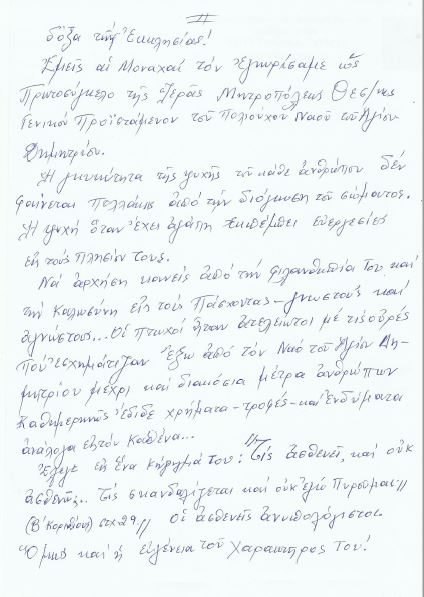 II
δόξα τῆς Ἐκκλησίας!
Ἐμεῖς αἱ Μοναχαί τόν ἐγνωρίσαμε ὡς
Πρωτοσύγκελο τῆς Ἱερᾶς Μητροπόλεως Θεσ/νης
Γενικόν Προϊστάμενον τοῦ Πολιούχου Ναοῦ τοῦ Ἁγίου
Δημητρίου.
Ἡ γενναιότητα τῆς ψυχῆς τοῦ κάθε ἀνθρώπου δέν
φαίνεται πολλάκις ἀπό τήν διόγκωση τοῦ σώματος.
Ἡ ψυχή ὅταν ἔχει ἀγάπη ἐκπέμπει εὐεργεσίες
εἰς τούς πλησίον τους.
Νά ἀρχήση κανείς ἀπό τήν φιλανθρωπία Του καί
τήν Καλωσύνη εἰς τούς Πάσχοντας - γνωστούς καί
ἀγνώστους... Οἱ πτωχοί ἦταν ἀτελείωτοι μέ τίς οὐρές
πού ἐσχημάτιζαν ἔξω ἀπό τόν Ναό τοῦ Ἁγίου Δη-
μητρίου μέχρι καί διακόσια μέτρα ἀνθρώπων
Καθημερινῶς ἔδιδε χρήματα - τροφές - καί ἐνδύματα
ἀνάλογα εἰς τόν καθένα...
Ἔλεγε εἰς ἕνα κήρυγμά του: "Τίς ἀσθενεῖ, καί οὐκ
ἀσθενῶ;.. Τίς σκανδαλίζεται καί οὐκ ἐγώ Πυροῦμαι;"
(Β' Κορινθίους) στχ 29." οἱ ἀσθενεῖς ἀνυπολόγιστοι.
Ὅμως καί ἡ εὐγένεια τοῦ Χαρακτῆρος Του!